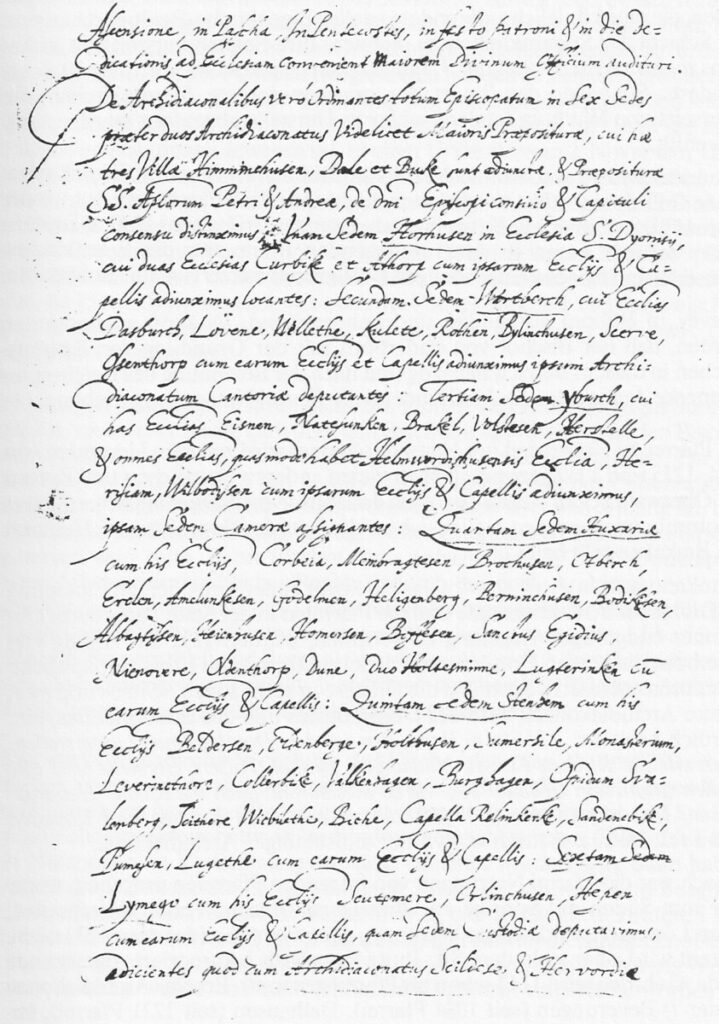 Ascensione, in Pascha, In Pentecostes, in festo patroni & in die de-
dicationis ad Ecclesiam convenient Maiorem Divinum Officium audituri.
De Archidiaconalibus vero Ordinantes totum Episcopatum in Sex Sedes
præter duos Archidiaconatus Videlicet Maioris Præposituræ, cui hæ
tres Villæ Himminehusen, Dale et Buke sunt adiunctæ, & Præposituræ
S.S. Aplorum Petri & Andreæ, de dni Episcopi consilio & Capituli
consensu distinximus Unam Sedem Horhusen in Ecclesia S. Dyonisij,
cui duas Ecclesias Curbike et Athorp cum ipsarum Ecclijs & Ca-
pellis adiunximus locantes: Secundam Sedem Wartberch, cui Ecclias
Dasburch, Lovene, Wellethe, Kulete, Rothen, Bylinchusen, Scerve,
Ossenthorp cum earum Ecclijs et Capellis adiunximus ipsum Archi-
diaconatum Cantoriæ deputantes: Tertiam Sedem yburch, cui
has Ecclias Eisnen, Natesunken, Brakel, Volstesen, Herstelle,
& omnes Ecclias, quas modo habet Helmwordishusensis Ecclia, He-
risiam, Wilbodesen cum ipsarum Ecclijs & Capellis adiunximus,
ipsam Sedem Cameræ assignantes: Quartam Sedem Huxariæ
cum his Ecclijs, Corbeia, Membragtesen, Brochusen, Otberch
Erclen, Amelunkesen, Godelmen, Heiligenberg, Berninchusen, Bodikesen,
Albagtissen, Heienhusen, Homersen, Boffesen, Sanctus Egidius,
Nienovere, Oldenthorp, Dune, duo Holtesminne, Lugterinken cu
earum Ecclijs & Capellis: Quintam Sedem Stenhem cum his
Ecclijs Beldersen, Oldenberge, Holthusen, Sumersile, Monasterium,
Leverincthore, Collerbike, Valkenhagen, Burghagen, Opidum Sva-
lenberg, Scithere, Wicbilethe, Biche, Capella Relinkerke, Sandenebike,
Pumesen, Lugethe cum earum Ecclijs & Capellis: Sextam Sedem
Lymego cum his Ecclijs Scutemere, Orlinchusen, Hepen
cum earum Ecclijs & Capellis, quam Sedem Custodiæ deputavimus,
adicientes quod cum Archidiaconatus Scildese & Hervordiæ